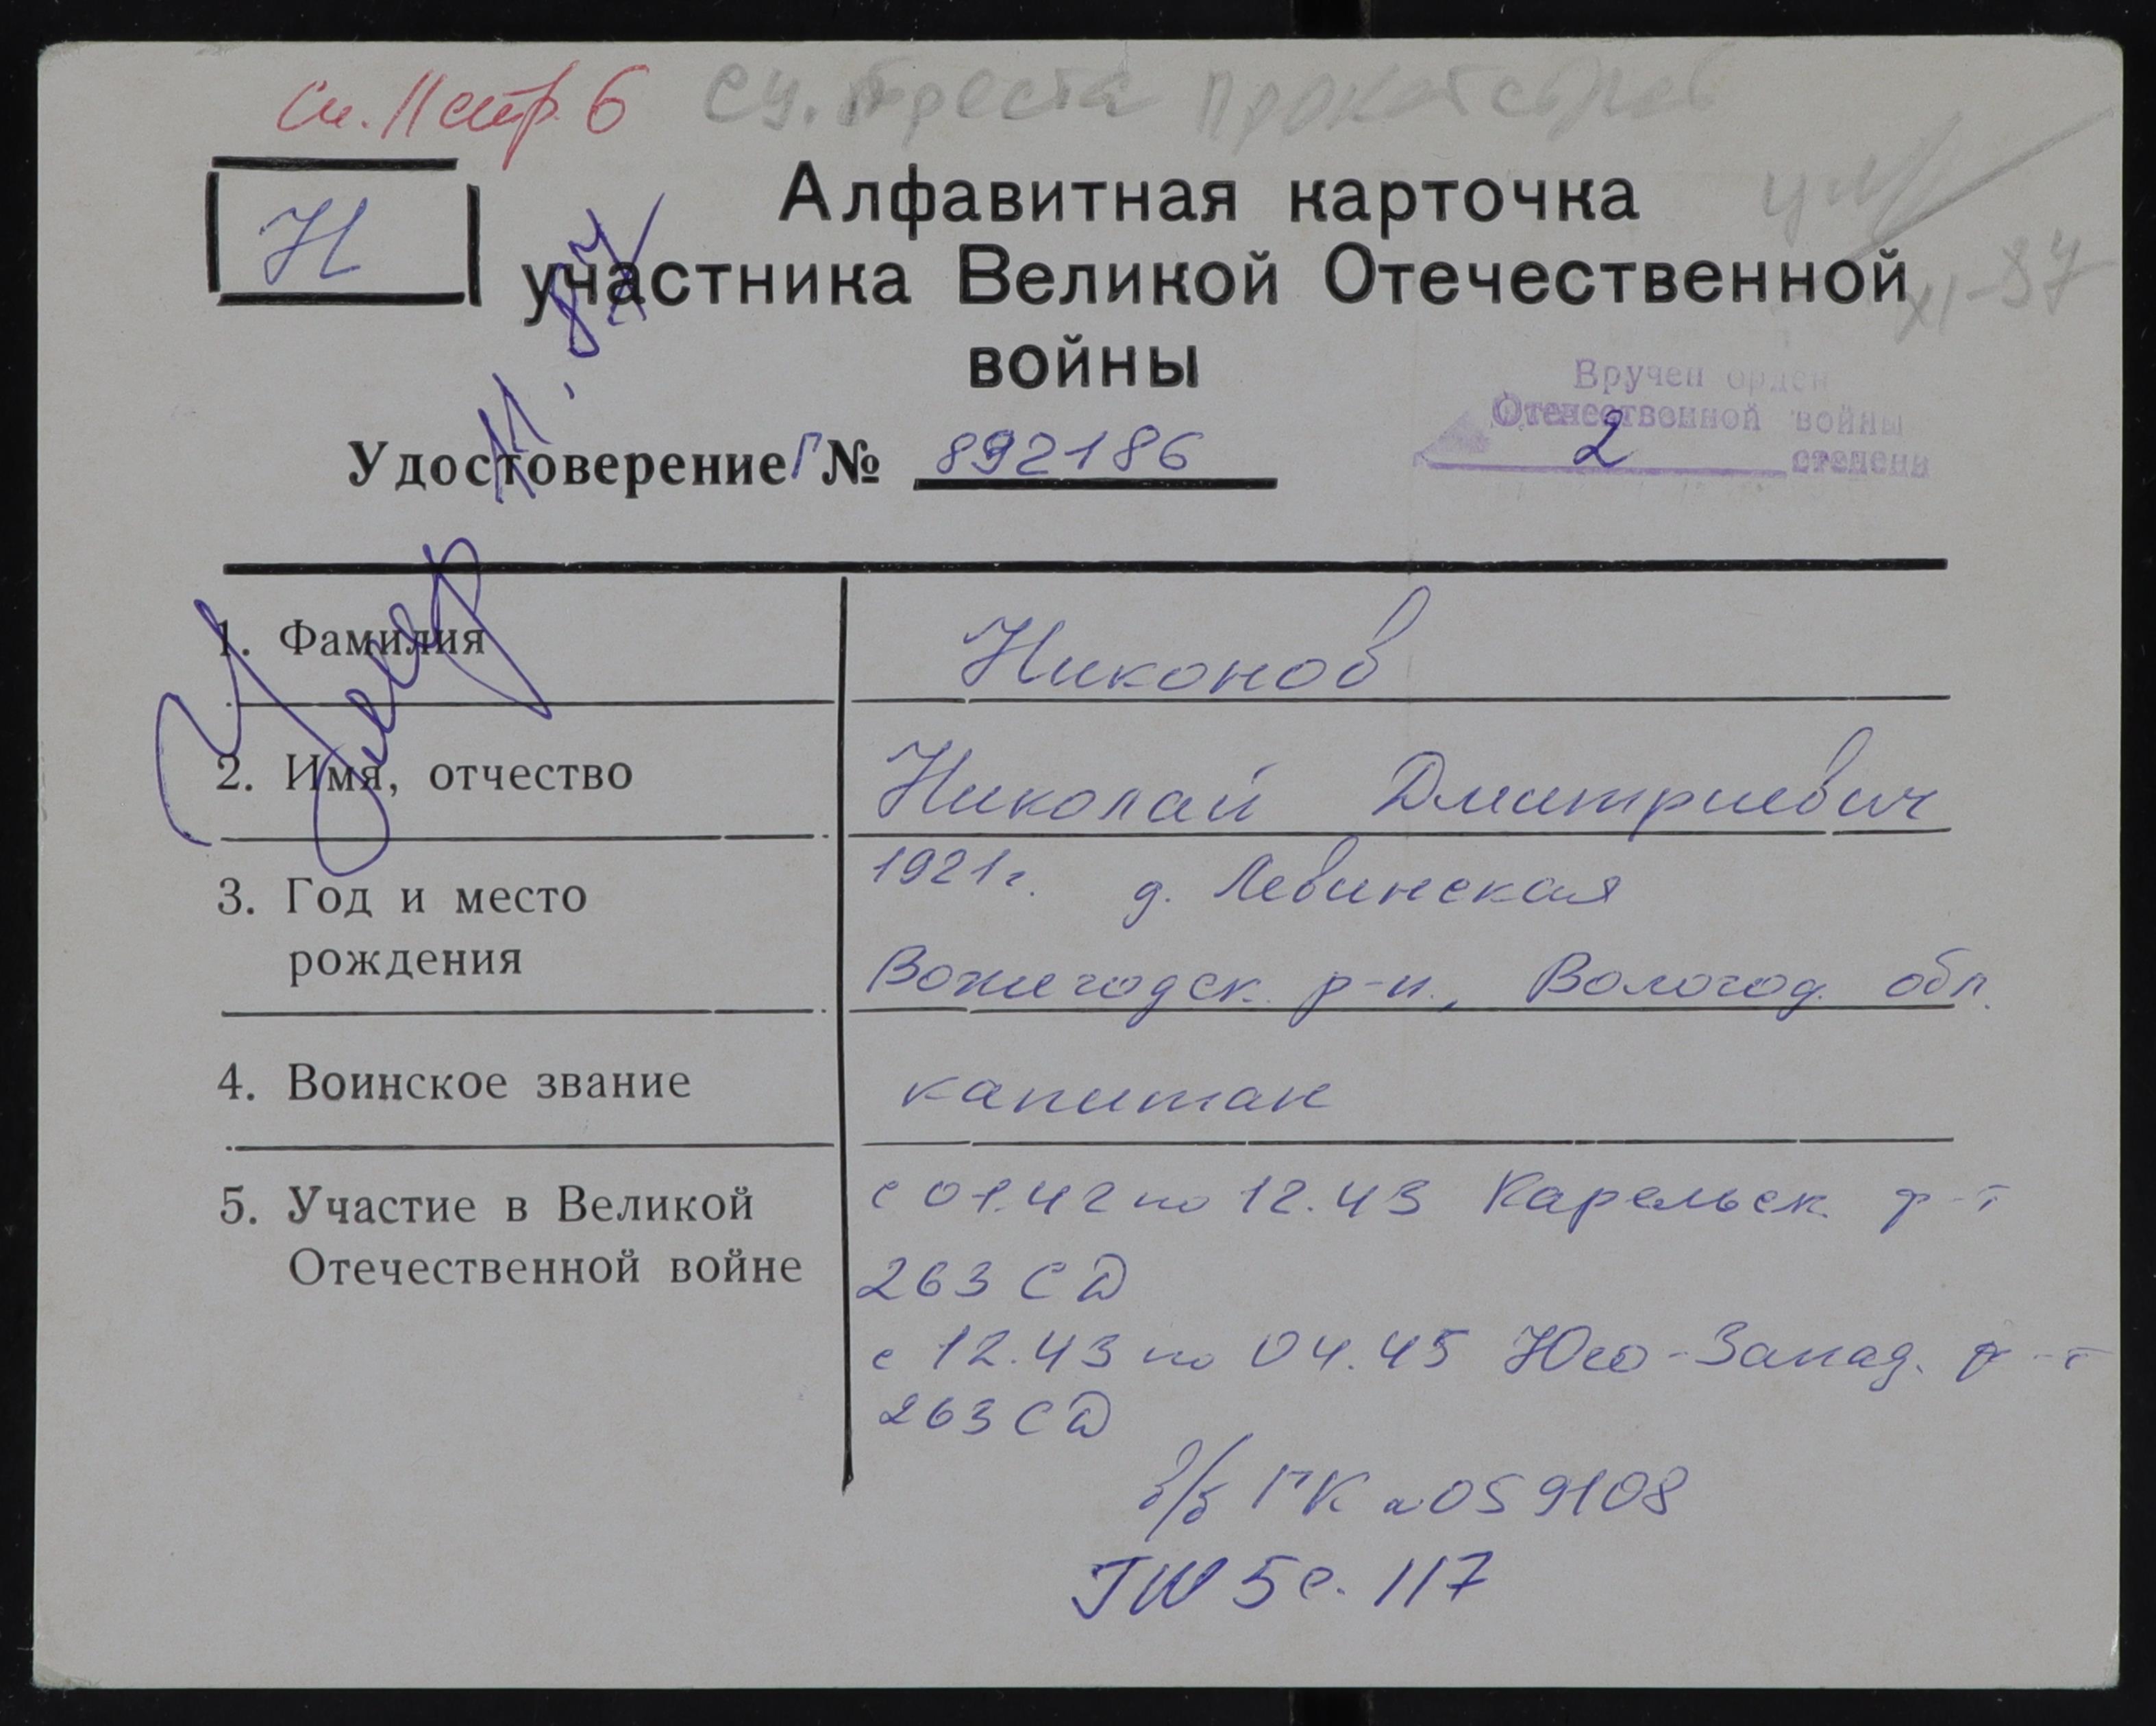 Сп. 11 стр. 6 СУ. треста
Н
Алфавитная карточка
участника Великой Отечественной
войны
XI-87
11.87
Вручен орден
Отечественной войны
2 степени
Удостоверение Г № 892186
Умер
1. Фамилия Никонов
2. Имя, отчество Николай Дмитриевич
3. Год и место 1921г. д. Левинская
рождения Вожегодск. р-н., Вологод. обл.
4. Воинское звание капитан
5. Участие в Великой с 01.42 по 12.43 Карельск. ф-т
Отечественной войне 263 СД
с 12.43 по 04.45 Юго-Запад. ф-т
263 СД
в/б ГК №059108
5 с. 117